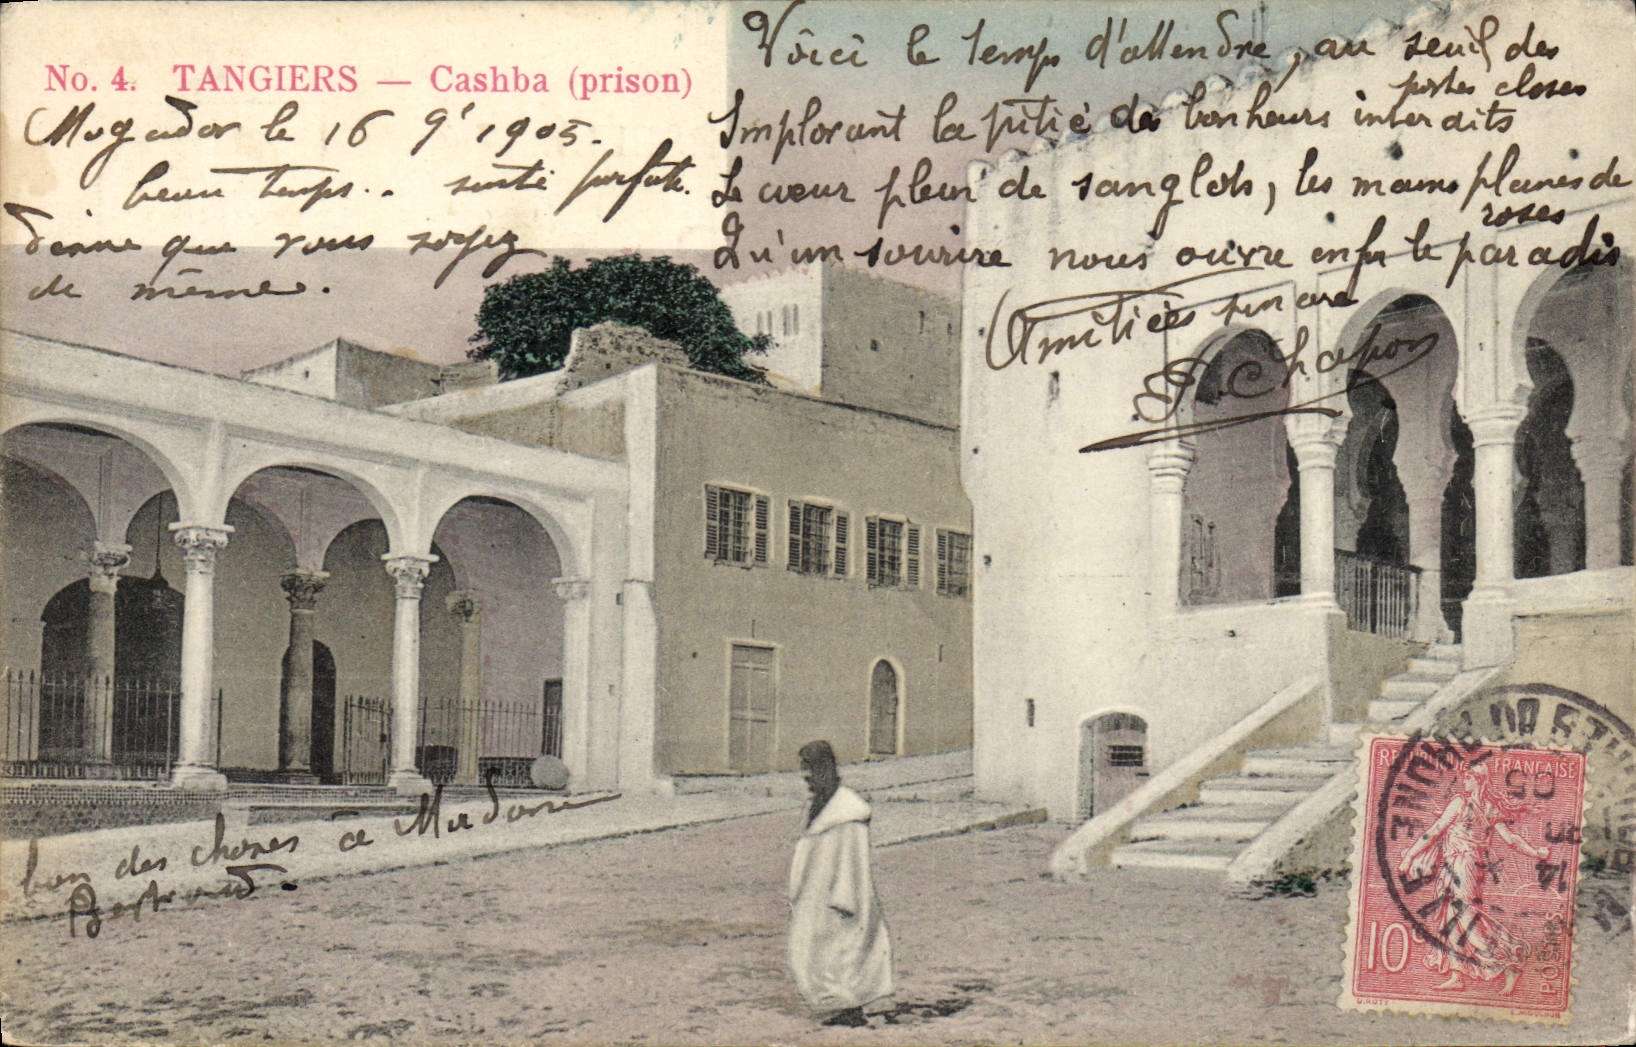 No. 4. TANGIERS — Cashba (prison)
Mogador le 16 9' 1905.
beau temps.. santé parfaite.
désire que vous soyez
de même.
Voici le temps d'attendre, au seuil des
portes closes
Implorant la pitié des bonheurs interdits
Le cœur plein de sanglots, les mains pleines de
roses
Qu'un sourire nous ouvre enfin le paradis
Amitiés sincères
Chapon
bon des choses à Madame
Bertrand.
REPUBLIQUE FRANÇAISE
10c
POSTES
O. ROTY
05
14
LIGNE